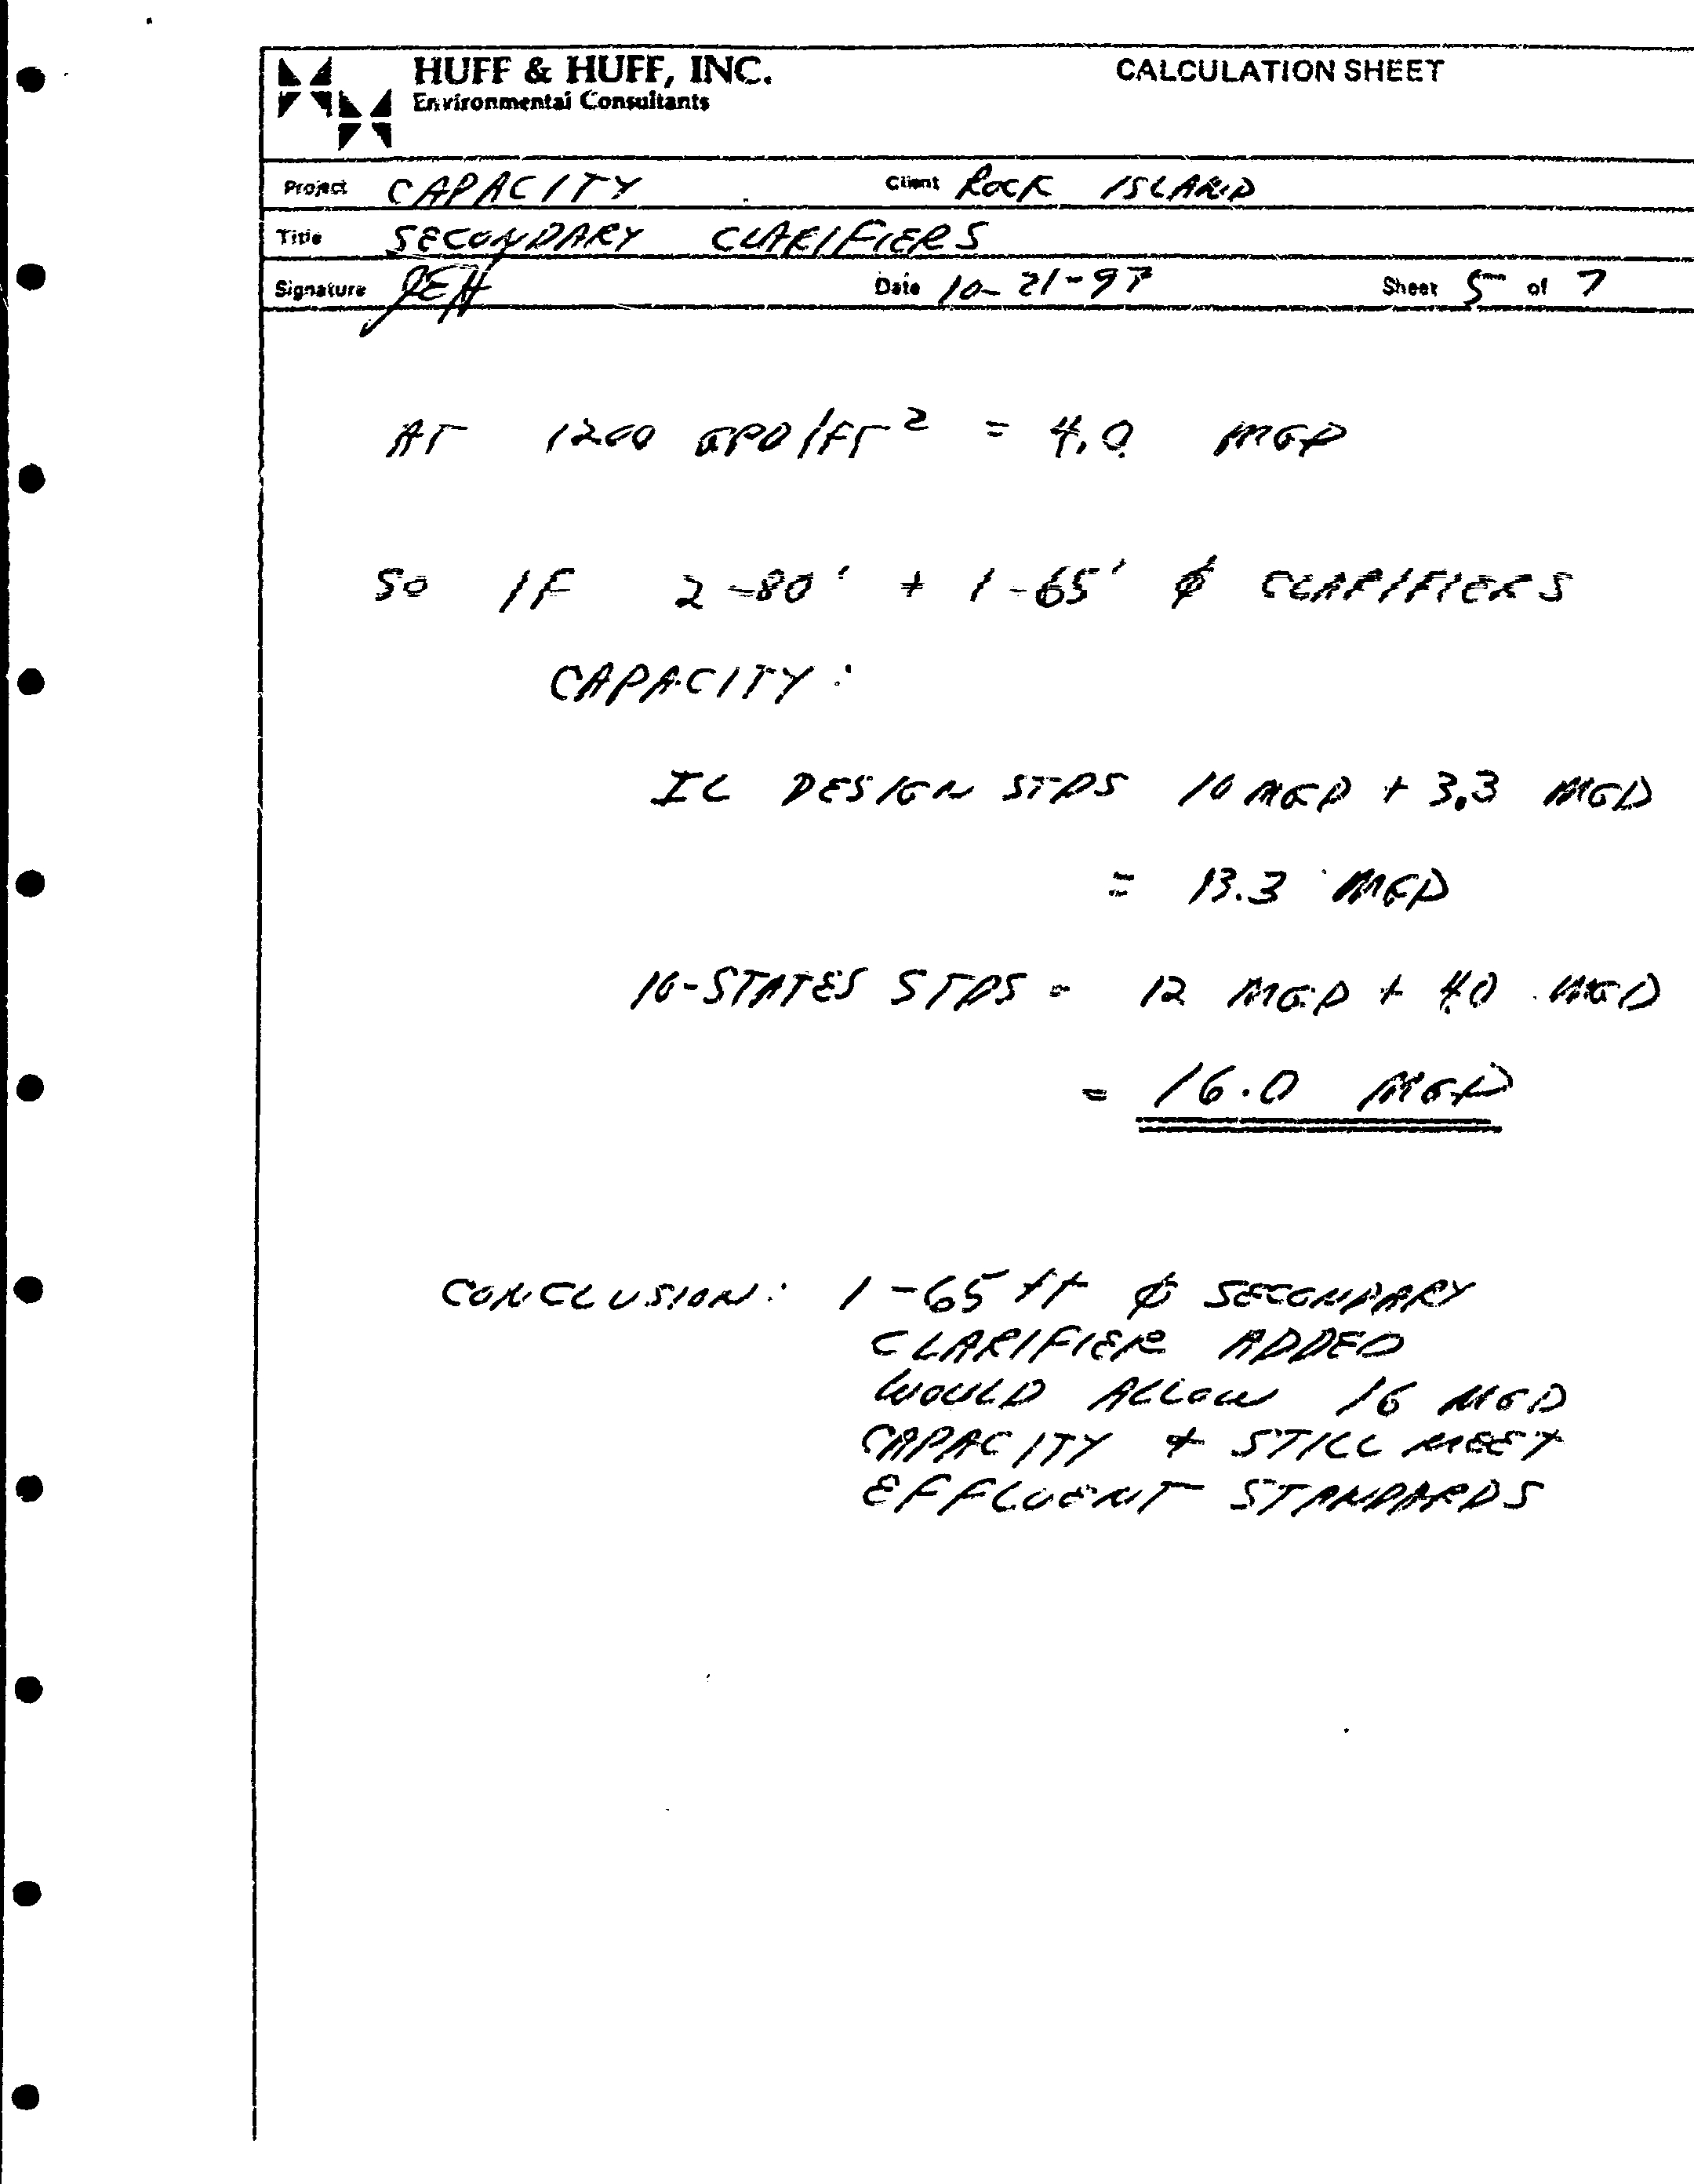 HUFF & HUFF, INC. CALCULATION SHEET
Environmental Consultants
Project CAPACITY Client ROCK ISLAND
Title SECONDARY CLARIFIERS
Signature JEH Date 10-21-97 Sheet 5 of 7
AT 1200 GPD/FT² = 4.0 MGD
SO IF 2-80' + 1-65' ϕ CLARIFIERS
CAPACITY:
IL DESIGN STDS 10 MGD + 3.3 MGD
= 13.3 MGD
10-STATES STDS = 12 MGD + 4.0 MGD
= 16.0 MGD
CONCLUSION: 1-65 ft ϕ SECONDARY
CLARIFIER ADDED
WOULD ALLOW 16 MGD
CAPACITY + STILL MEET
EFFLUENT STANDARDS